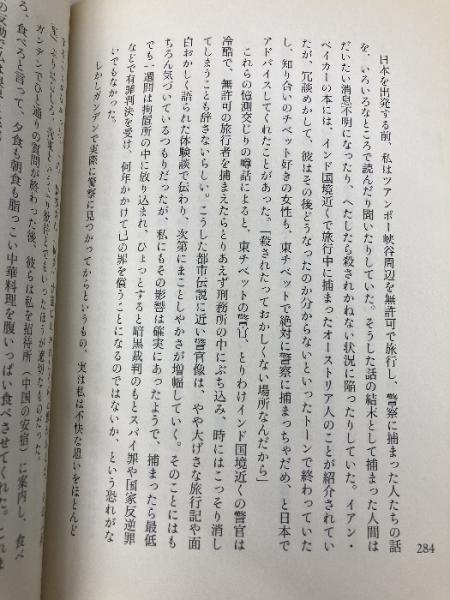 日本を出発する前、私はツアンポー峡谷周辺を無許可で旅行し、警察に捕まった人たちの話
を、いろいろなところで読んだり聞いたりしていた。そうした話の結末として捕まった人間は
だいたい消息不明になったり、へたしたら殺されかねない状況に陥ったりしていた。イアン・
ベイカーの本には、インド国境近くで旅行中に捕まったオーストリア人のことが紹介されてい
たが、冗談めかして、彼はその後どうなったのか分からないといったトーンで終わっていた
し、知り合いのチベット好きの女性も、東チベットで絶対に警察に捕まっちゃだめ、と日本で
アドバイスしてくれたことがあった。「殺されたっておかしくない場所なんだから」
これらの憶測交じりの噂話によると、東チベットの警官、とりわけインド国境近くの警官は
冷酷で、無許可の旅行者を捕まえたらとりあえず刑務所の中にぶち込み、時にはこっそり消し
てしまうことも辞さないらしい。こうした都市伝説に近い警官像は、やや大げさな旅行記や面
白おかしく語られた体験談で伝わり、次第にまことしやかさが増幅していく。そのことにはも
ちろん気づいているつもりだったが、私にもその影響は確実にあったようで、捕まったら最低
でも一週間は拘置所の中に放り込まれ、ひょっとすると暗黒裁判のもとスパイ罪や国家反逆罪
などで有罪判決を受け、何年かかけて己の罪を償うことになるのではないか、という恐れがな
いでもなかった。
しかしガンデンで実際に警察に見つかってからというもの、実は私は不快な思いをほとんど
ガンデンでひと通りの質問が終わった後、彼らは私を招待所（中国の安宿）に案内し、食べ
ろ、食べろと言って、夕食も朝食も脂っこい中華料理を腹いっぱい食べさせてくれた。これま
284